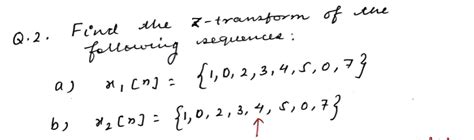 Q.2. Find the z-transform of the
following sequences:
a) x₁[n] = {1,0,2,3,4,5,0,7}
b) x₂[n] = {1,0,2,3,4,5,0,7}
↑